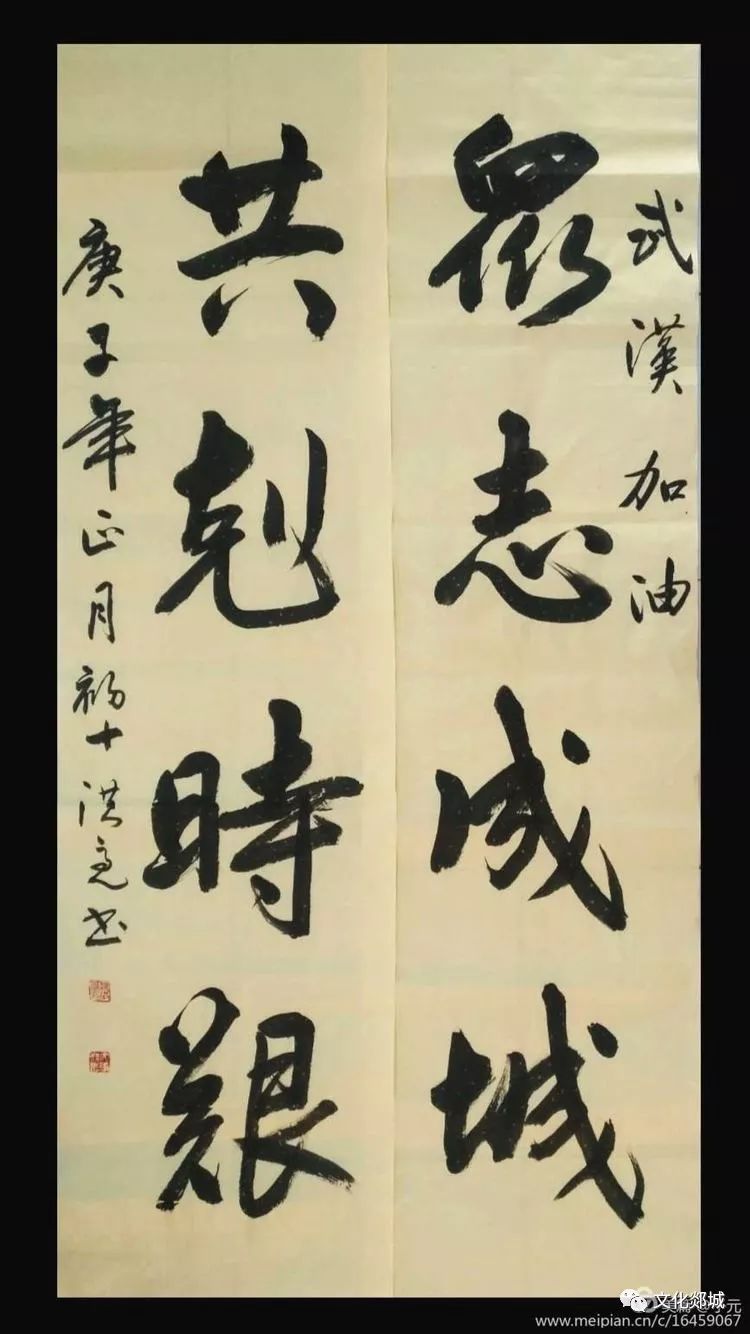 武漢加油
眾志成城
共剋時艱
庚子年正月初十洪亮书
文化郯城
www.meipian.cn/c/16459067